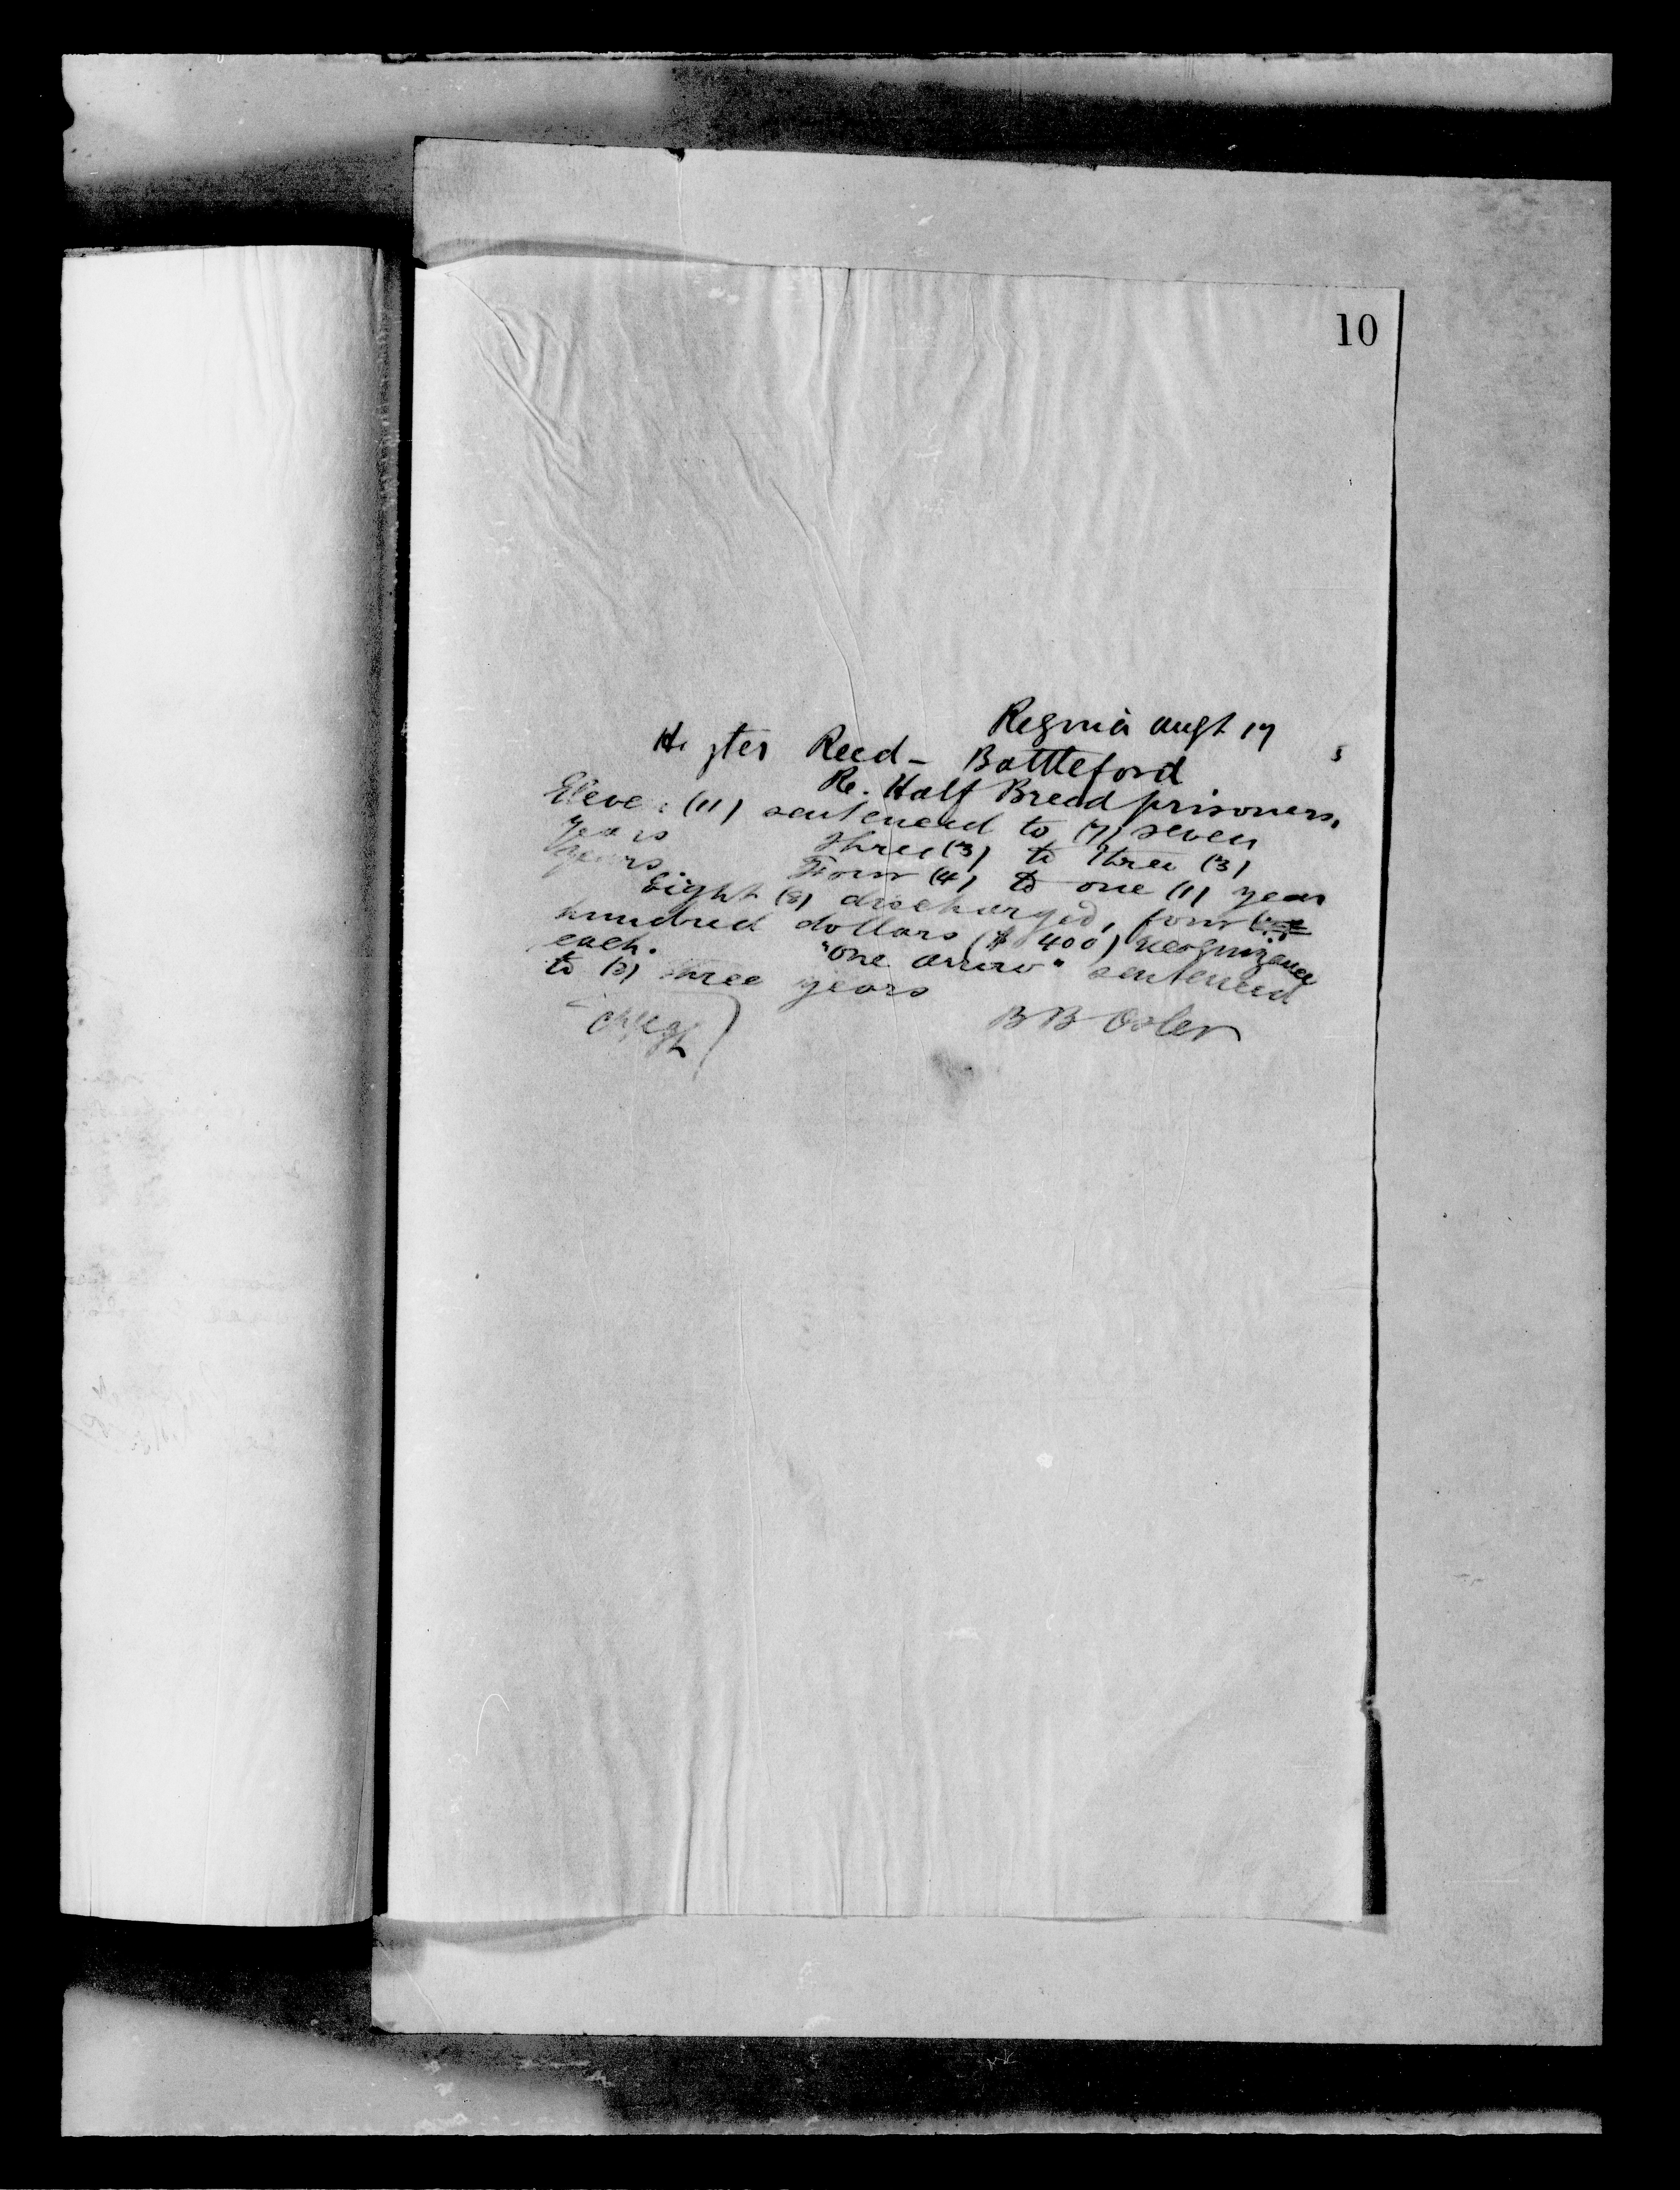 10
Regina augt 17
Hayter Reed - Battleford
Re. Half Breed prisoners,
Eleven (11) sentenced to (7) seven
years three (3) to three (3)
years Four (4) to one (1) year
Eight (8) discharged, four
hundred dollars ($400) recognizance
each. "One arrow" sentenced
to (3) three years
B B Osler